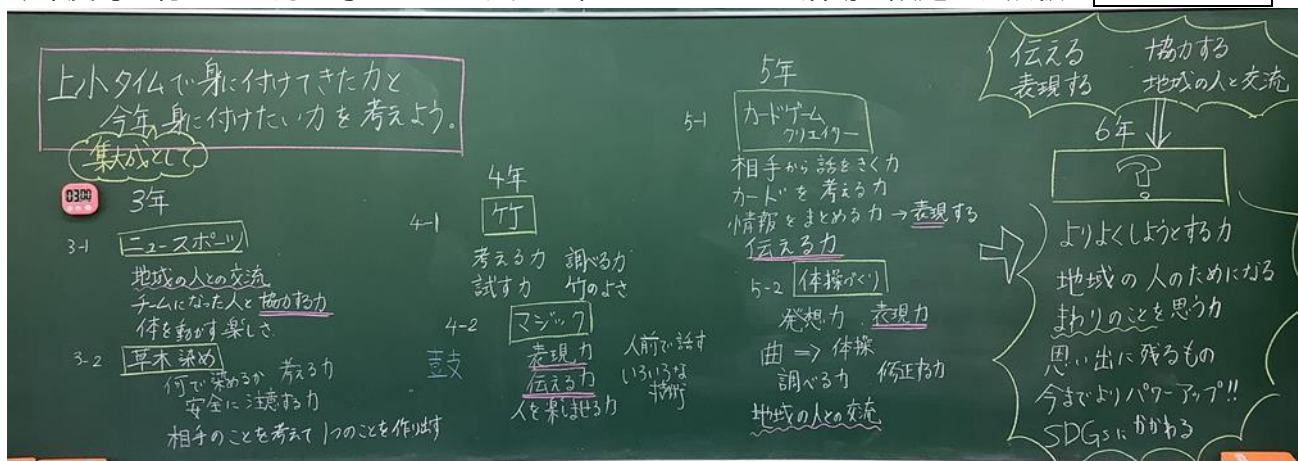 上小タイムで身に付けてきた力と
今年、身に付けたい力を考えよう。
集大成として
03:00
3年
3-1 ニュースポーツ
地域の人との交流
チームになった人と協力する力
体を動かす楽しさ
3-2 草木染め
何で染めるか 考える力
安全に注意する力
相手のことを考えて1つのことを作り出す
4年
4-1 竹
考える力 調べる力
試す力 竹のよさ
4-2 マジック
鼓
表現力
伝える力
人を楽しませる力
人前で話す
いろいろな
技術
5年
5-1 カードゲーム
クリエイター
相手から話をきく力
カードを考える力
情報をまとめる力→表現する
伝える力
5-2 体操づくり
発想力 表現力
曲⇒体操
調べる力 修正する力
地域の人との交流
伝える 協力する
表現する 地域の人と交流
6年
?
よりよくしようとする力
地域の人のためになる
まわりのことを思う力
思い出に残るもの
今までよりパワーアップ!!
SDGsにかかわる